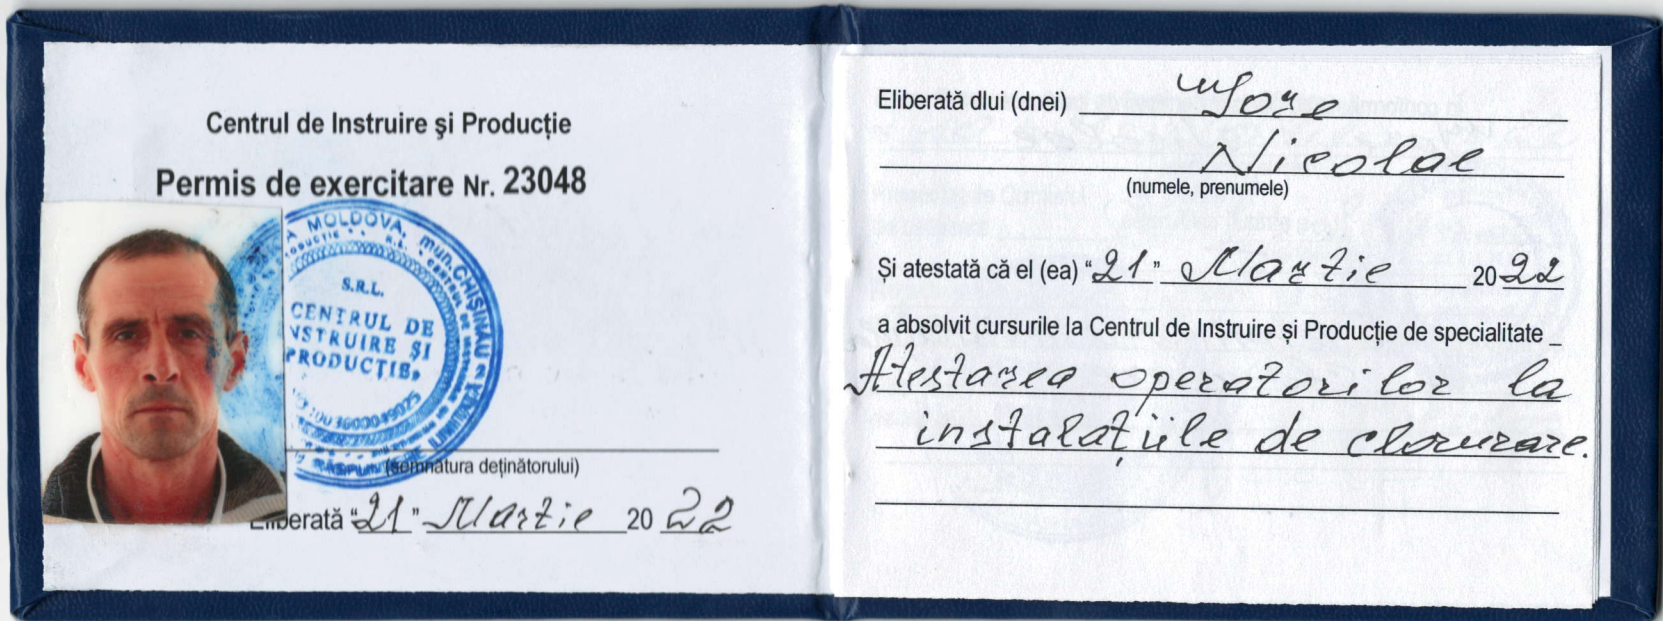 Centrul de Instruire şi Producţie
Permis de exercitare Nr. 23048
MOLDOVA, mun. CHIŞINĂU
S.R.L.
CENTRUL DE
INSTRUIRE ŞI
PRODUCŢIE
(semnătura deţinătorului)
Eliberată "21" Martie 2022
Eliberată dlui (dnei)
Nicolae
(numele, prenumele)
Şi atestată că el (ea) "21" Martie 2022
a absolvit cursurile la Centrul de Instruire şi Producţie de specialitate
Atestarea operatorilor la
instalaţiile de clorurare.